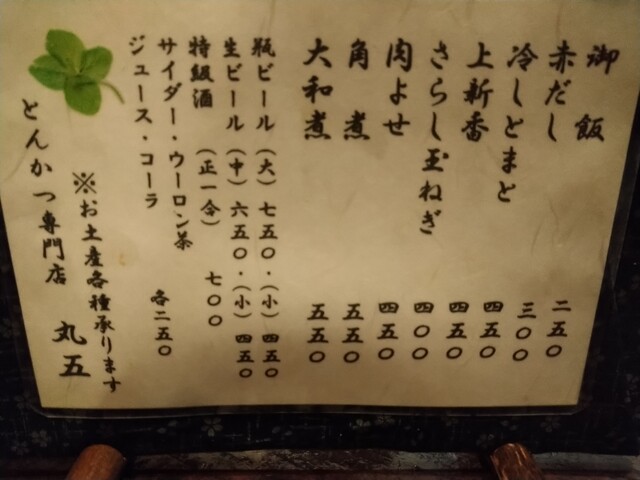 御飯 二五〇
赤だし 三〇〇
冷しとまと 四五〇
上新香 四五〇
さらし玉ねぎ 四〇〇
肉よせ 四五〇
角煮 五五〇
大和煮 五五〇
瓶ビール（大）七五〇・（小）四五〇
生ビール（中）六五〇・（小）四五〇
特級酒（正一合）七〇〇
サイダー・ウーロン茶
ジュース・コーラ 各二五〇
※お土産各種承ります
とんかつ専門店 丸五